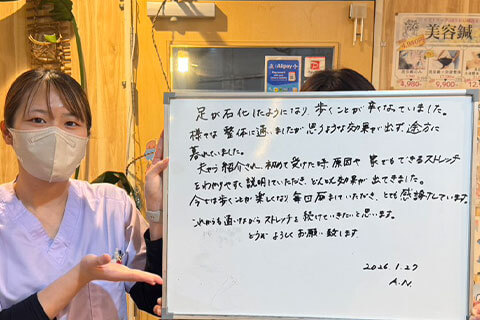 Alipay
美容鍼
足が石化したようになり、歩くことが辛くなっていました。
様々な整体に通いましたが思うような効果が出ず、途方に
暮れていました。
夫から紹介され、初めて受けた時、原因や家でもできるストレッチ
をわかりやすく説明していただき、どんどん効果が出てきました。
今では歩くことが楽しくなり毎回励ましていただき、とても感謝しています。
これからも通いながらストレッチを続けていきたいと思います。
どうぞよろしくお願い致します。
2026.1.27
A.N.